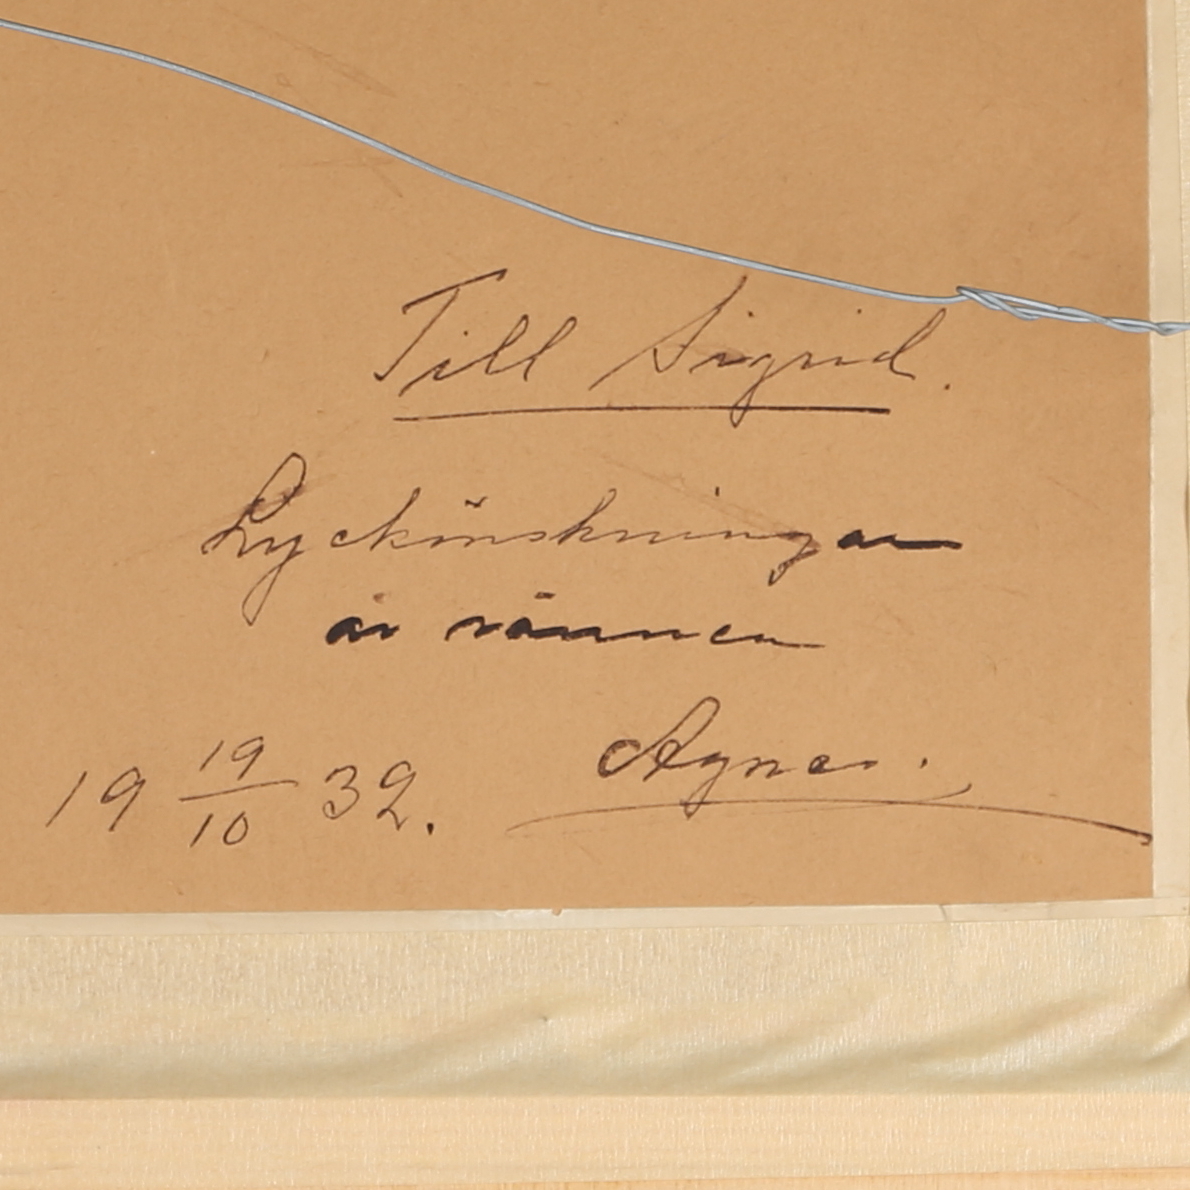 Till Sigrid.
Lyckönskningar
av vännen
Agnes.
19 19/10 32.